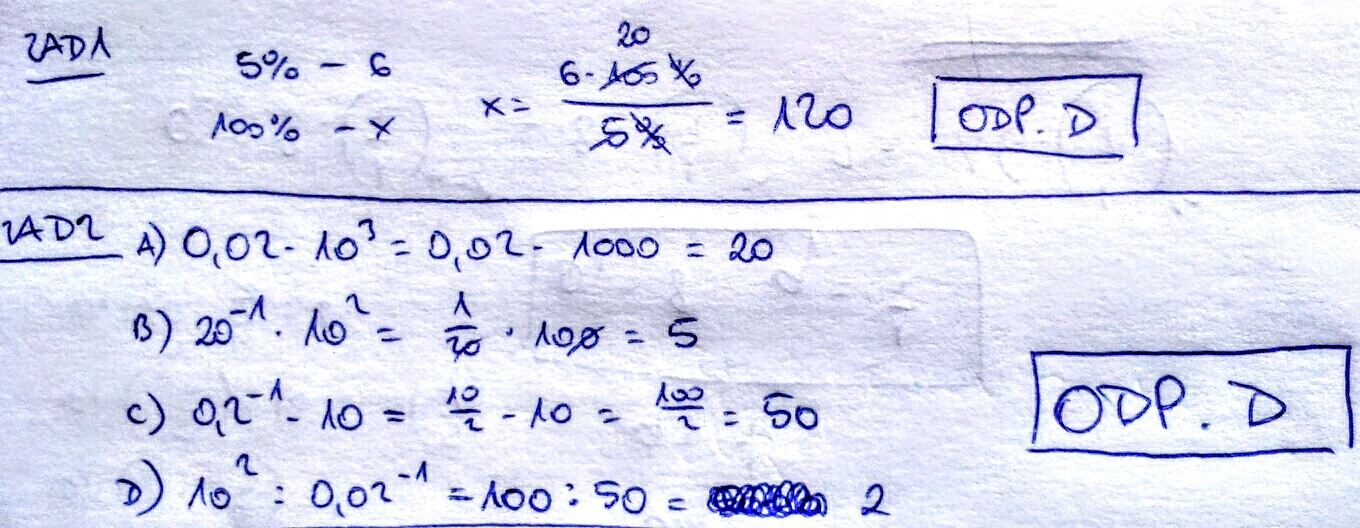 ZAD1
5% – 6
100% – x
x = 6·100% / 5% = 120
20
ODP. D
ZAD2 A) 0,02 · 10³ = 0,02 · 1000 = 20
B) 20⁻¹ · 10² = 1/20 · 100 = 5
C) 0,2⁻¹ · 10 = 10/2 · 10 = 100/2 = 50
ODP. D
D) 10² : 0,02⁻¹ = 100 : 50 = 2